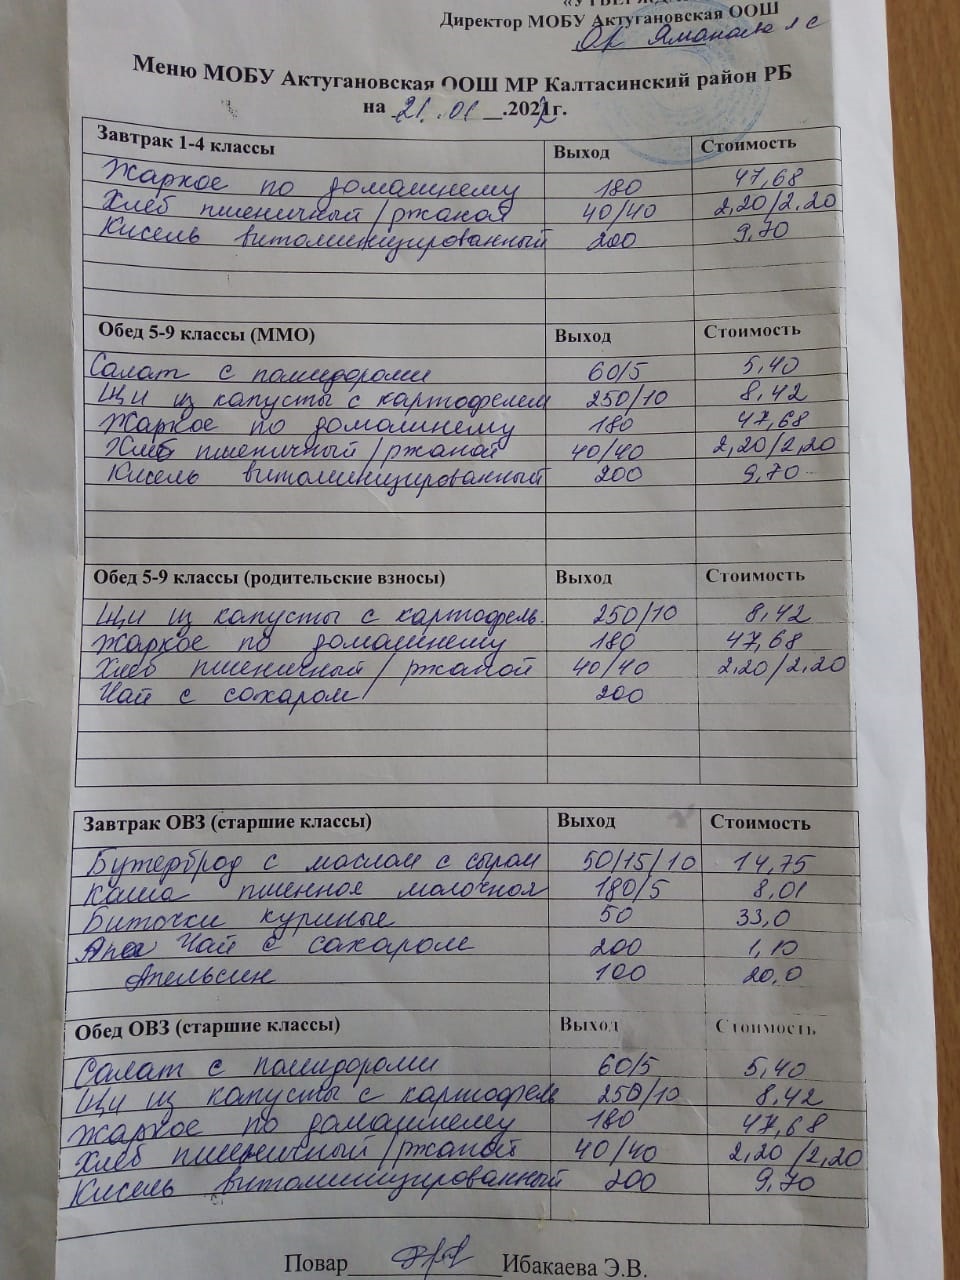 «УТВЕРЖДАЮ»
Директор МОБУ Актугановская ООШ
Меню МОБУ Актугановская ООШ МР Калтасинский район РБ
на 21.01 .2022г.
Завтрак 1-4 классы Выход Стоимость
Жаркое по домашнему 180 47,68
Хлеб пшеничный/ржаной 40/40 2,20/2,20
Кисель витаминизированный 200 9,70
Обед 5-9 классы (ММО) Выход Стоимость
Салат с помидорами 60/5 5,40
Щи из капусты с картофелем 250/10 8,42
Жаркое по домашнему 180 47,68
Хлеб пшеничный/ржаной 40/40 2,20/2,20
Кисель витаминизированный 200 9,70
Обед 5-9 классы (родительские взносы) Выход Стоимость
Щи из капусты с картофель. 250/10 8,42
Жаркое по домашнему 180 47,68
Хлеб пшеничный/ржаной 40/40 2,20/2,20
Чай с сахаром 200
Завтрак ОВЗ (старшие классы) Выход Стоимость
Бутерброд с маслом с сыром 50/15/10 14,75
Каша пшенная молочная 180/5 8,01
Биточки куриные 50 33,0
Чай с сахаром 200 1,10
Апельсин 100 20,0
Обед ОВЗ (старшие классы) Выход Стоимость
Салат с помидорами 60/5 5,40
Щи из капусты с картофель 250/10 8,42
Жаркое по домашнему 180 47,68
Хлеб пшеничный/ржаной 40/40 2,20/2,20
Кисель витаминизированный 200 9,70
Повар Ибакаева Э.В.